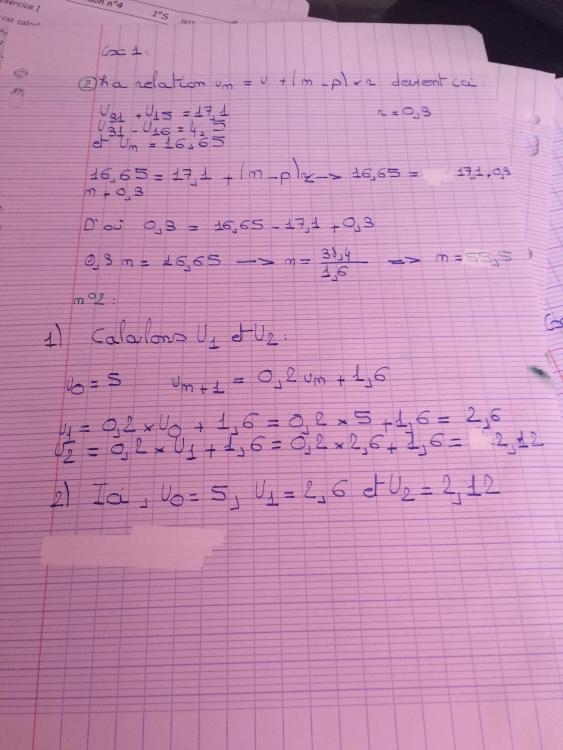 Exercice 1
on n°4
1°S
Ex 1.
② La relation um = u + (m - p) x r devient ici
U31 + U15 = 17,1 r = 0,3
U31 - U16 = 4,5
et Um = 16,65
16,65 = 17,1 + (m - p) r -> 16,65 = 17,1 + 0,3
m + 0,3
D'où 0,3 = 16,65 - 17,1 + 0,3
0,3 m = 16,65 -> m = 38,4/1,6 => m = 55,5
m°2 :
1) Calalons U1 et U2 :
u0 = 5 um+1 = 0,2um + 1,6
u1 = 0,2 x U0 + 1,6 = 0,2 x 5 + 1,6 = 2,6
U2 = 0,2 x U1 + 1,6 = 0,2 x 2,6 + 1,6 = 2,12
2) Ici, U0 = 5, U1 = 2,6 et U2 = 2,12